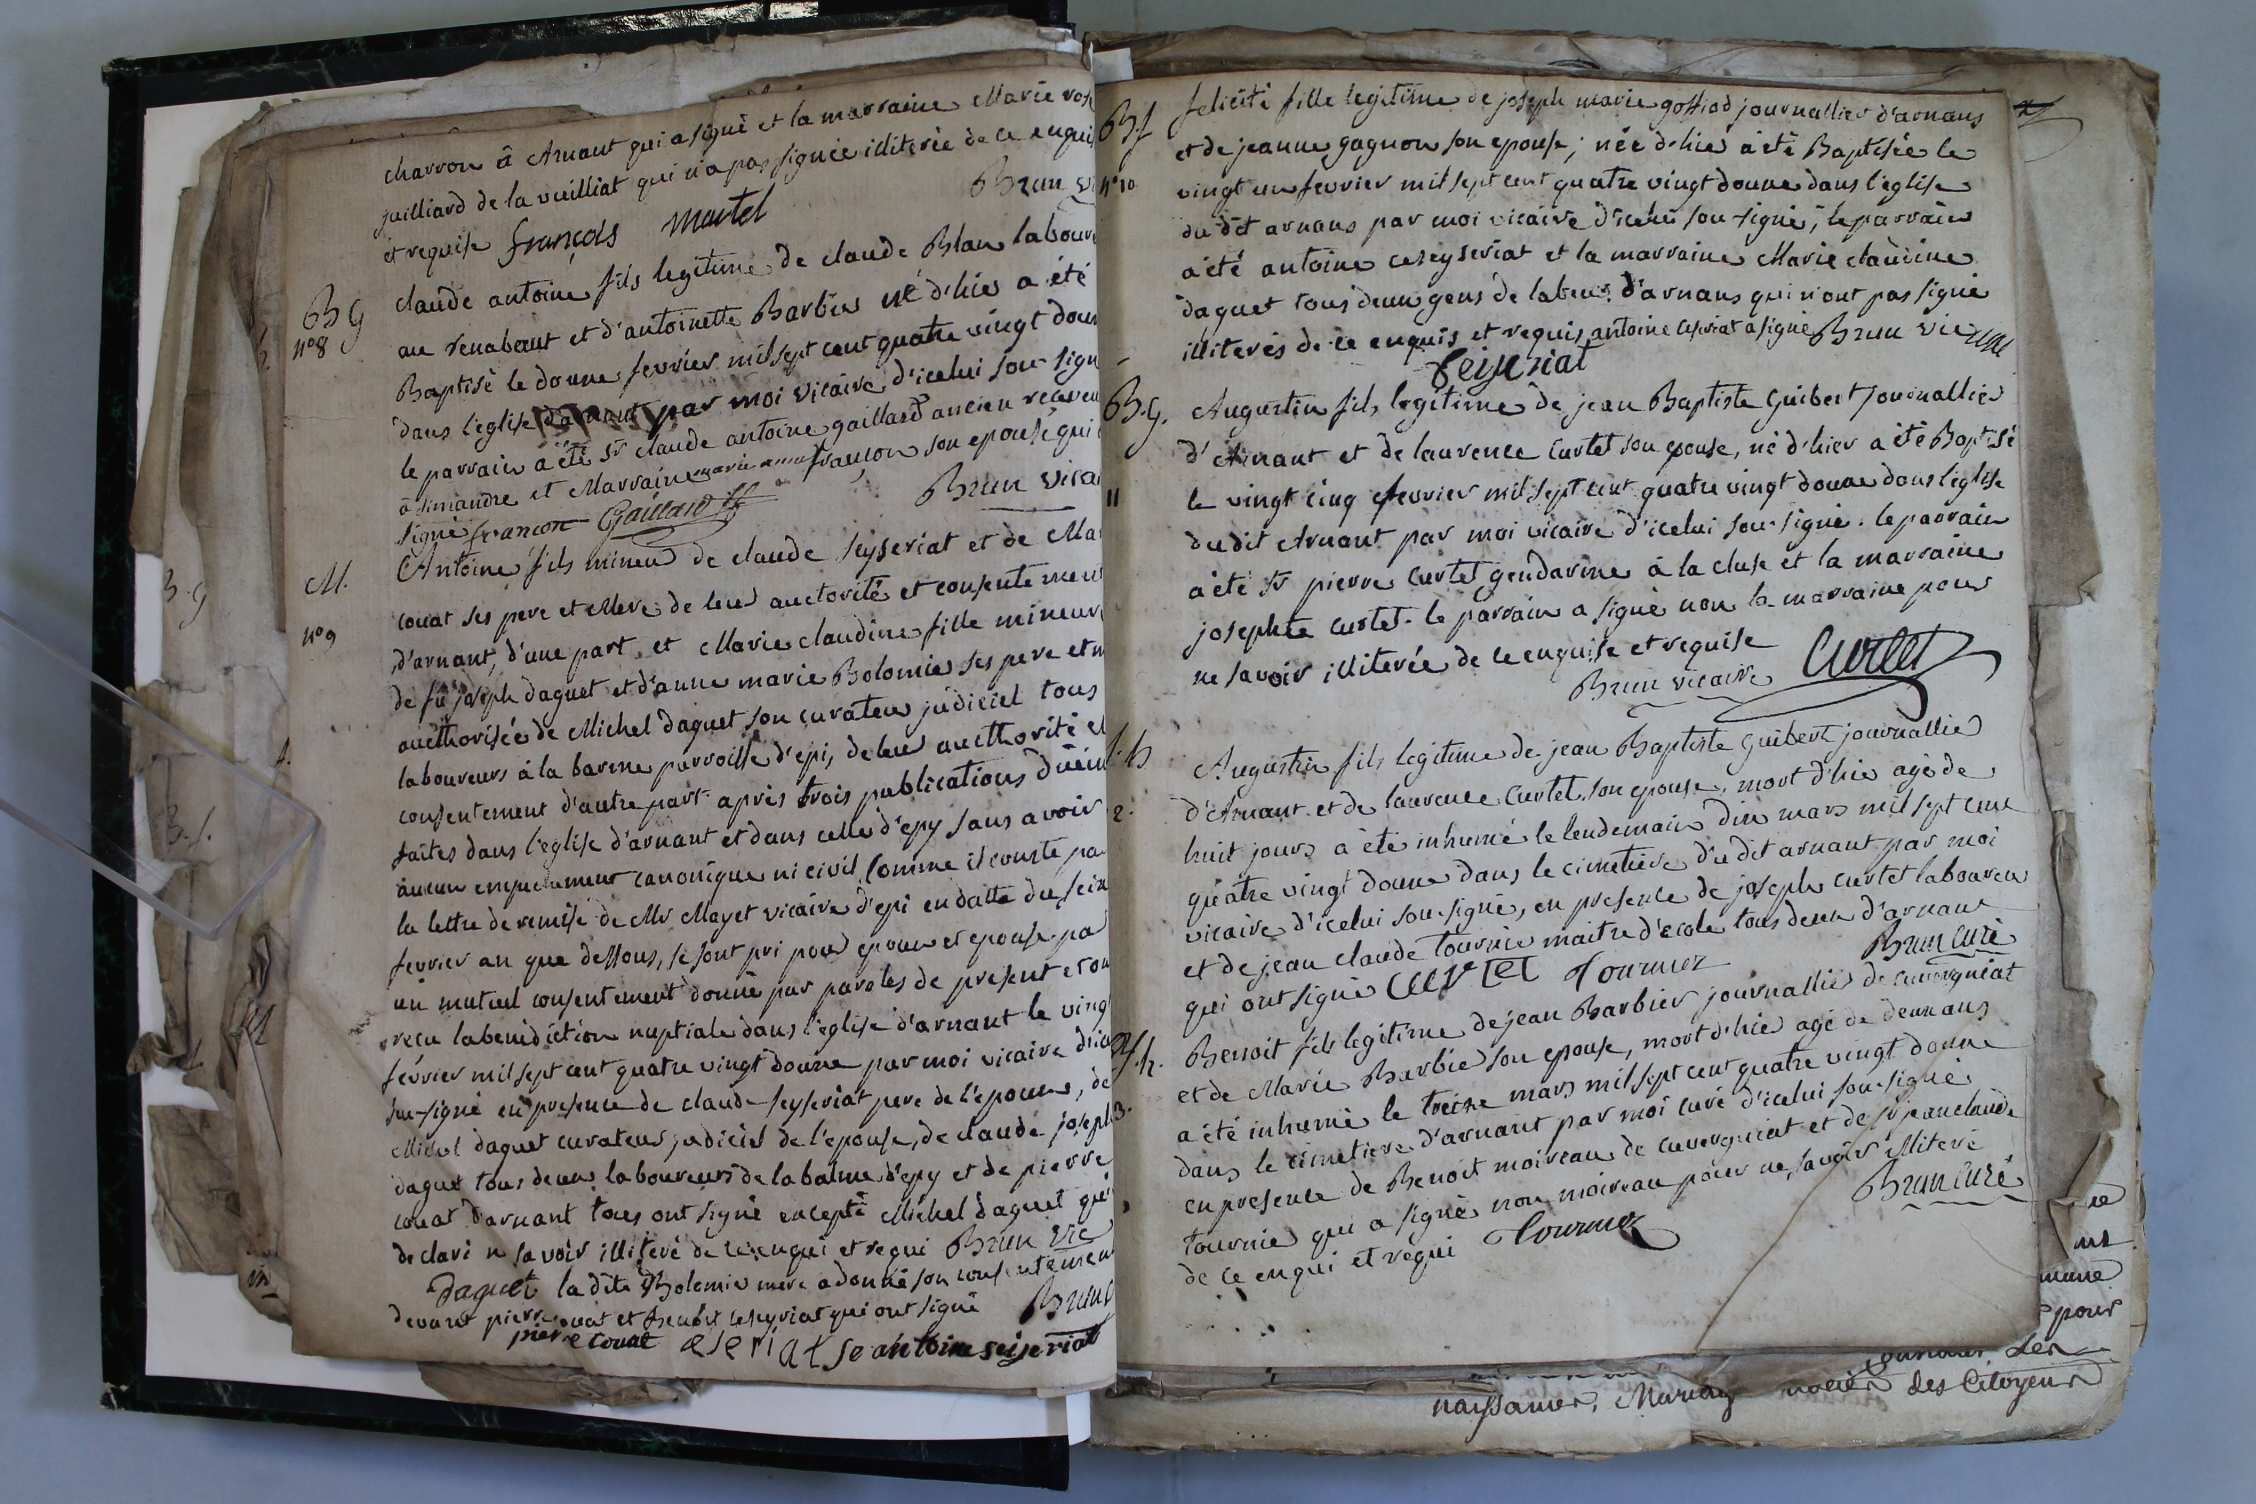 charron à Arnant qui a signé et la marraine Marie ros
juilliard de la vieilliat qui n'a pas signée illiterée de ce enquis
et requise françois martel Brun vi
B g
n° 8
claude antoine fils legitime de claude Blan laboure
au renabeaut et d'antoinette Barbier né d'hier a été
Baptisé le douze fevrier mil sept cent quatre vingt douz
dans l'eglise d'arnant par moi vicaire d'icelui sou-sign
le parrain a été Sr claude antoine gaillard ancien receveu
à simandre et Marraine marie anne françon son epouse qui
signé françon Gaillard Brun vica
M.
n° 9
Antoine fils mineu de claude seyseriat et de Ma
couat ses pere et Mere de leur auctorité et consentemen
d'arnant, d'une part et Marie claudine fille mineure
de fu joseph daguet et d'anne marie Bolomie ses pere et m
aucthorisée de Michel daguet son curateur judiciel tous
laboureurs à la barme parroisse d'epi, de leu aucthorité et
consentement d'autre part après trois publications düem
faites dans l'eglise d'arnant et dans celle d'epy sans avoir
aucun empechement canonique ni civil, comme il conste pa
la lettre de remise de Mr Mayet vicaire d'epi en datte du seiz
fevrier an que dessous, se sont pri pour epoux et epouse pa
un mutuel consentement donné par paroles de present et on
recu la benediction nuptiale dans l'eglise d'arnant le ving
février mil sept cent quatre vingt douze par moi vicaire d'ice
sou-signé en presence de claude seyseriat pere de l'epoux, de
Michel daguet curateur judiciel de l'epouse, de claude joseph
daguet tous deux laboureurs de la balme d'epy et de pierre
couat d'arnant tous ont signé excepté Michel daguet qui
declaré n savoir illiteré de ce enqui et requi Brun vic
Daguet la dite Bolomie mere a donné son consentement
devant pierre couat et qui ont signé Brun
pierre couat eseriat se antoine seiseriat
B.f
n° 10
felicité fille legitime de joseph marie goffiod journallier d'arnans
et de jeanne gagnon son epouse; née d'hié a été Baptisée le
vingt un fevrier mil sept cent quatre vingt douze dans l'eglise
du dit arnans par moi vicaire d'icelui sou-signé, le parrain
a été antoine ceseyseriat et la marraine Marie claudine
daguet tous deux gens de labeur d'arnans qui n'ont pas signé
illiterés de ce enquis et requis, antoine a signé Brun vic
seiseriat
B.g.
11
Augustin fils legitime de jean Baptiste guibert journallier
d'Arnant et de laurence curtet son epouse, né d'hier a été Baptisé
le vingt cinq fevrier mil sept cent quatre vingt douze dans l'eglise
du dit Arnant par moi vicaire d'icelui sou-signé. le parrain
a été Sr pierre curtet gendarme à la cluse et la marraine
josephte curtet. le parrain a signé non la marraine pour
ne savoir illiterée de ce enquise et requise
Brun vicaire Curtet
2.
Augustin fils legitime de jean Baptiste guibert journallié
d'Arnant et de laurence curtet son epouse, mort d'hié agé de
huit jours a été inhumé le lendemain dix mars mil sept cent
quatre vingt douze dans le cimetière du dit arnant par moi
vicaire d'icelui sou-signé, en presence de joseph curtet laboureu
et de jean claude tournié maitre d'ecole tous deux d'arnant
qui ont signé Curtet Tournier Brun curé
f.h.
3.
Benoit fils legitime de jean Barbier journallié de cuvergniat
et de Marie Barbié son epouse, mort d'hié agé de deux ans
a été inhumé le treize mars mil sept cent quatre vingt douze
dans le cimetiere d'arnant par moi curé d'icelui sou-signé
en presence de Benoit moireau de cuvergniat et de Sr jean claude
tournié qui a signé non moireau pour ne savoir illiteré
de ce enqui et requi Tournier Brun curé
mune
pour
des
naissances, Mariag des Citoyens